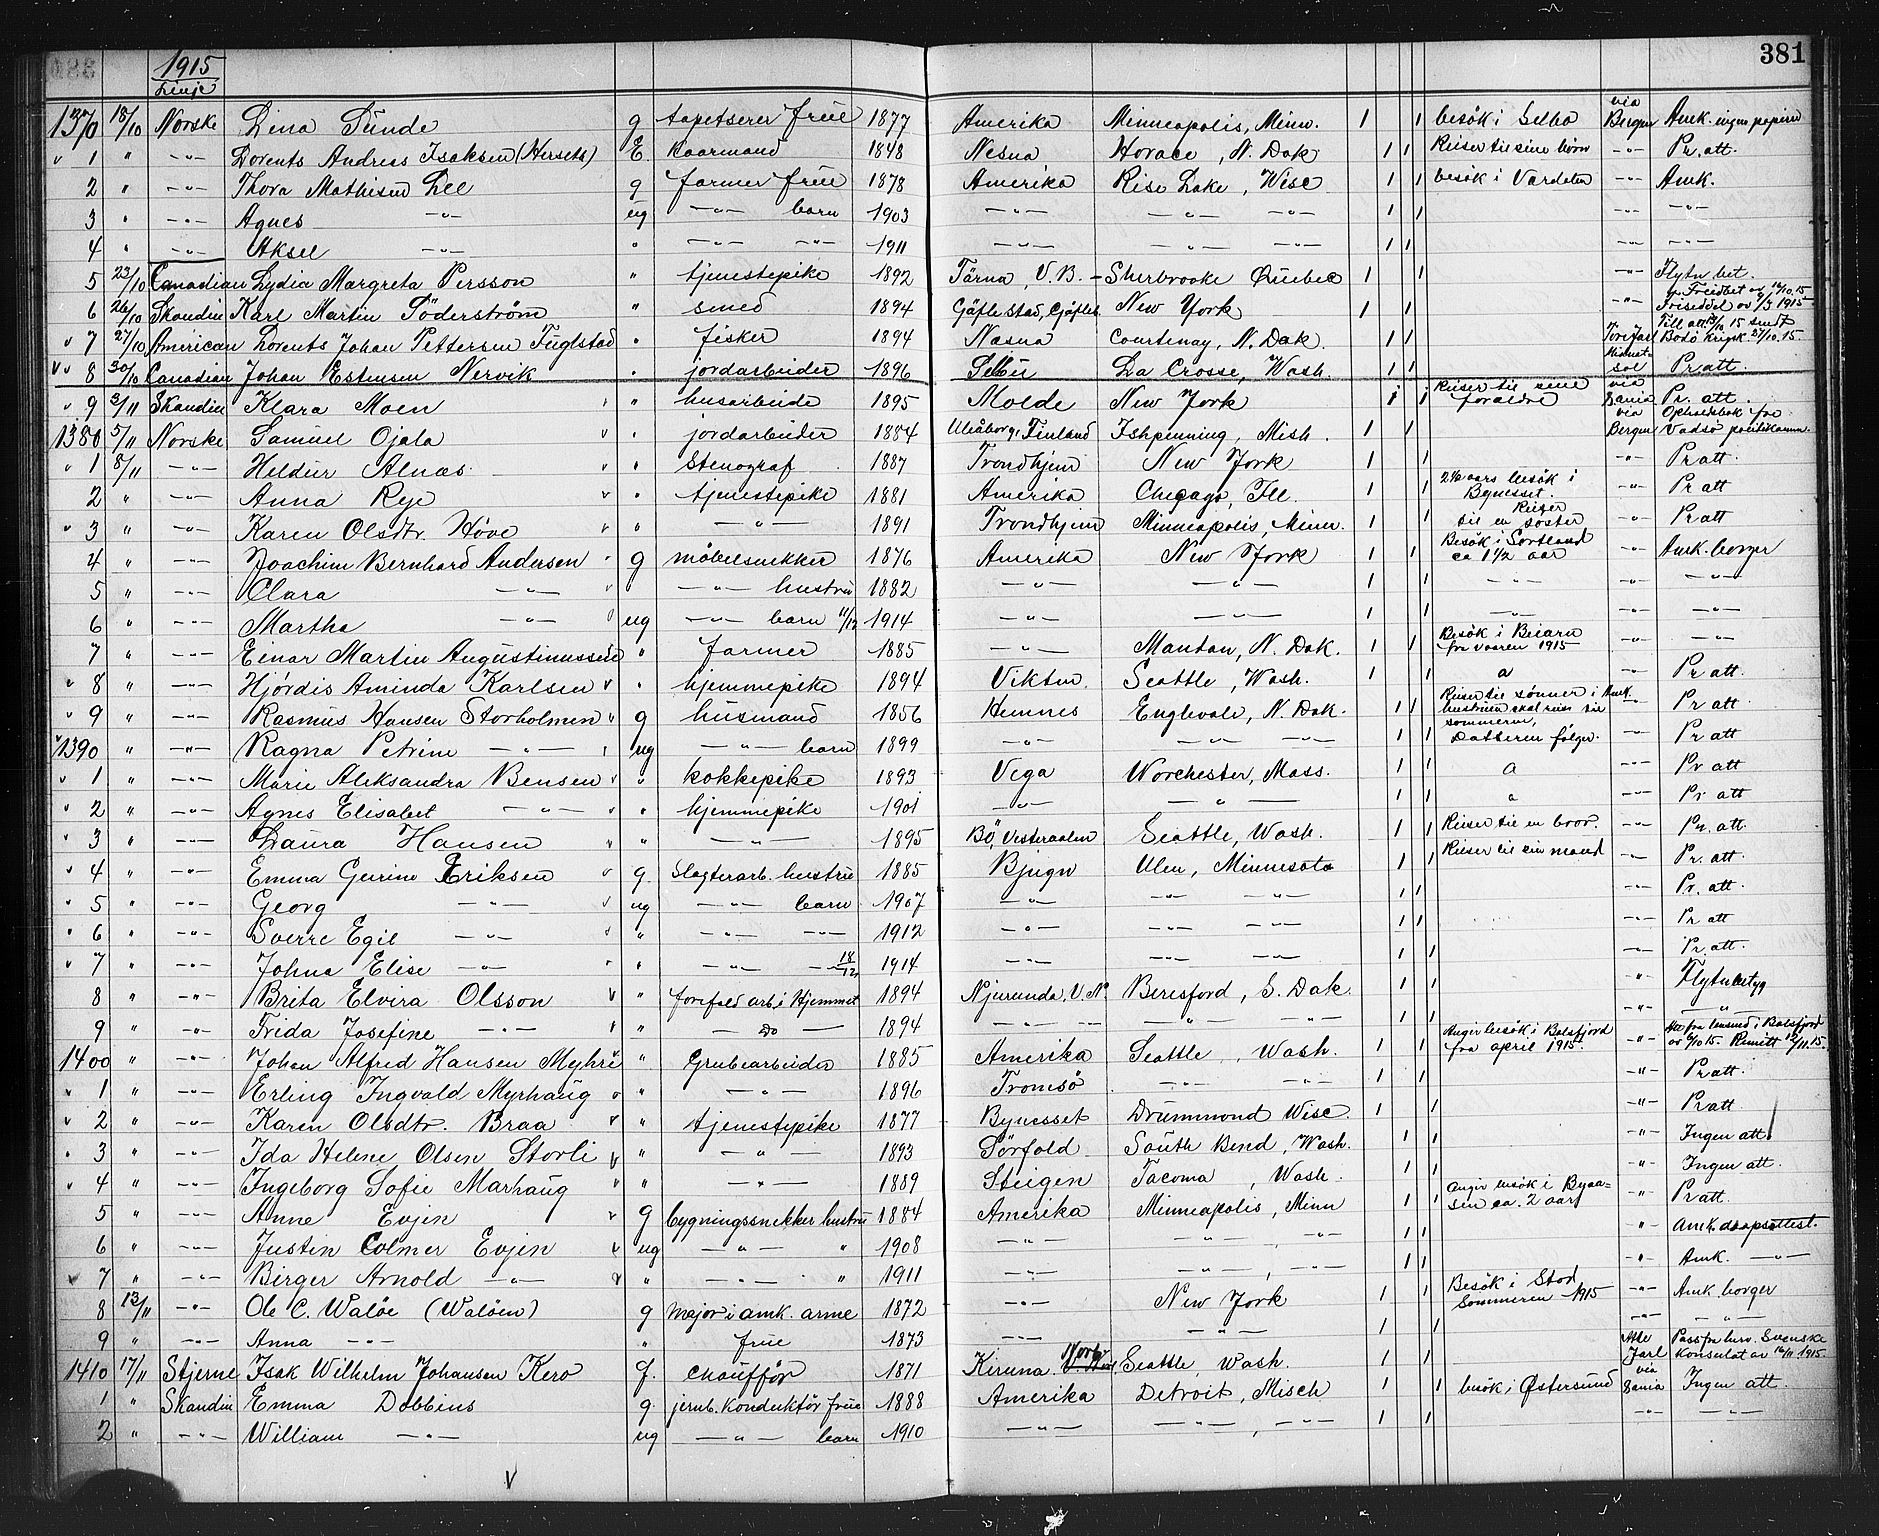 1915 381
Linje
1370 18/10 Norske Lina Sunde g tapetserer frue 1877 Amerika Minneapolis, Minn. 1 1 besök i Selbo via Bergen Amk. ingen papirer
1 " -"- Lorents Andreas Isaksen (Hersets) E. Kaarmand 1848 Nesna Horace, N. Dak. 1 1 Reiser til sine börn -"- Pr. att.
2 " -"- Thora Mathisen Lee g farmer frue 1878 Amerika Rise Lake, Wisc 1 1 besök i Vardalen -"- Amk.
3 " -"- Agnes -"- ug -"- barn 1903 -"- -"- -"- 1 1 -"- -"-
4 " -"- Aksel -"- " -"- -"- 1911 -"- -"- -"- 1 1 -"- -"-
5 23/10 Canadian Lydia Margreta Persson " tjenestepike 1892 Tärna, V.B. - Sherbrooke Quebec 1 1 -"- Flytn. bet.
6 26/10 Skandin Karl Martin Söderström " smed 1894 Gäfle stad, Gäfleb. New York 1 1 -"- Frisedel av 9/3 1915
7 27/10 American Lorents Johan Pettersen Fuglstad " fisker 1894 Nesna Courtenay, N. Dak. 1 1 Tore Jarl Bodö krigsk. 27/10.15
8 30/10 Canadian Johan Estensen Nervik " jordarbeider 1896 Selbu La Crosse, Wash. 1 1 Midnatsol Pr att.
9 3/11 Skandin Klara Moen " husarbeide 1895 Molde New York 1 1 Reiser til sine foraldre via Dania Pr. att.
1380 5/11 Norske Samuel Ojala " jordarbeider 1884 Uleåborg, Finland Ishpenning, Mish. 1 1 via Bergen Opholdsbok fra Vadsö politikamm.
1 8/11 -"- Heldur Alnæs " Stenograf 1887 Trondhjem New York 1 1 -"- Pr att
2 " -"- Anna Rye " tjenestepike 1881 Amerika Checago, Ill. 1 1 2½ aars besök i Bynesset. -"- Pr att
3 " -"- Karen Olsdtr. Höve " -"- 1891 Trondhjem Minneapolis, Minn. 1 1 Reiser til en söster -"- Pr att
4 " -"- Joachim Bernhard Andersen g möbelsnikker 1876 Amerika New York 1 1 Besök i Sortland ca 1½ aar -"- Amk. borger
5 " -"- Clara -"- " -"- hustru 1882 -"- -"- 1 1 -"- -"- -"-
6 " -"- Martha -"- ug -"- barn 11/12 1914 -"- -"- 1 1 -"- -"- -"-
7 " -"- Einar Martin Augustinussen " farmer 1885 -"- Mantan, N. Dak. 1 1 Besök i Beiarn fra vaaren 1915 -"- -"-
8 " -"- Hjördis Aminda Karlsen " hjemmepike 1894 Vikten Seattle, Wash. 1 1 a -"- Pr att.
9 " -"- Rasmus Hansen Storholmen g husmand 1856 Hemnes Englevale, N. Dak. 1 1 Reiser til sönner i Amk. hustruen skal reise til sommeren, -"- Pr att
1390 " -"- Ragna Petrine -"- ug -"- barn 1899 -"- -"- -"- 1 1 Datteren fölger. -"- Pr att
1 " -"- Marie Aleksandra Bensen " kokkepike 1893 Vega Worchester, Mass. 1 1 a -"- Pr att
2 " -"- Agnes Elisabet -"- " hjemmepike 1901 -"- -"- 1 1 a -"- Pr att
3 " -"- Laura Hansen " -"- 1895 Bö, Vesteraalen Seattle, Wash. 1 1 Reiser til en bror. -"- Pr. att.
4 " -"- Emma Gurine Eriksen g. Slagterarb. hustru 1885 Bjugn Ulen, Minnesota 1 1 Reiser til sin mand -"- Pr. att
5 " -"- Georg -"- ug -"- barn 1907 -"- -"- -"- 1 1 -"- Pr. att
6 " -"- Sverre Egil -"- " -"- -"- 1912 -"- -"- -"- 1 1 -"- Pr att
7 " -"- Johna Elise -"- " -"- 14/12 1914 -"- -"- -"- 1 1 -"- Pr. att.
8 " -"- Brita Elvira Olsson " forefald arb. i Hjemmet 1894 Njurunda, V. N. Beresford, S. Dak. 1 1 " Flytnbetyg
9 " -"- Frida Josefine -"- " - Do - 1894 -"- -"- -"- 1 1 -"- -"-
1400 " -"- Johan Alfred Hansen Myhre " Grubearbeider 1885 Amerika Seattle, Wash. 1 1 Angir besök i Balsfjord fra april 1915. -"- Att fra lensmd. i Balsfjord av 6/10 15. Remitt 12/11.15.
1 " -"- Erling Ingvald Myrhaug " -"- 1896 Tromsö -"- -"- 1 1 -"- Pr att.
2 " -"- Karen Olsdtr. Braa " tjenestepike 1877 Bynesset Drummond Wisc. 1 1 -"- Pr att.
3 " -"- Ida Helene Olsen Storli " -"- 1893 Sörfold South Bend, Wash. 1 1 -"- Ingen att.
4 " -"- Ingeborg Sofie Marhaug " -"- 1889 Steigen Tacoma, Wash. 1 1 -"- Ingen att.
5 " -"- Anne Evjen g bygningssnekker hustru 1884 Amerika Minneapolis, Minn 1 1 Angir besök i Byaasen ca. 2 aar " Pr att.
6 " -"- Justin Colmer Evjen ug -"- " 1908 -"- -"- -"- 1 1 " Amk. daapsattest.
7 " -"- Birger Arnold -"- " -"- " 1911 -"- -"- -"- 1 1 " Amk. -"-
8 13/11 -"- Ole C. Walöe (Walöen) g major i amk. arme 1872 -"- New York 1 1 Besök i Stod Sommeren 1915 -"- Amk borger
9 " -"- Anna -"- " frue 1873 -"- -"- 1 1 -"- -"-
1410 17/11 Stjerne Isak Wilhelm Johansen Kero g. chaufför 1871 Kiruna Norb. Seattle, Wash. 1 1 Atle Jarl Pass fra herv. Svenske Konsulat av 16/11 1915.
1 " Skandin Emma Dobbins g. jernb. Konduktör frue 1888 Amerika Detroit, Misch 1 1 besök i Østersund via Dania Ingen att.
2 " -"- William -"- ug -"- barn 1910 -"- -"- -"- 1 1 -"- -"-